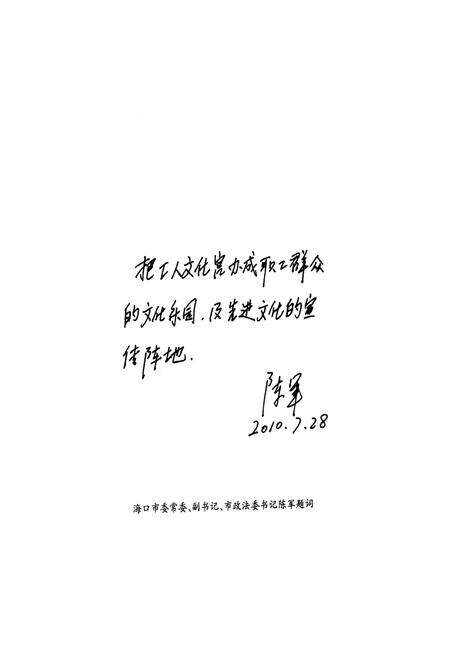 把工人文化宫办成职工群众
的文化乐园、及先进文化的宣
传阵地.
陈军
2010.7.28
海口市委常委、副书记、市政法委书记陈军题词